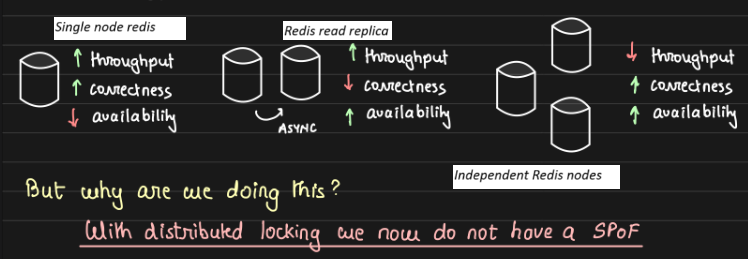 Single node redis
↑ throughput
↑ correctness
↓ availability
Redis read replica
ASYNC
↑ throughput
↓ correctness
↑ availability
↓ throughput
↑ correctness
↑ availability
Independent Redis nodes
But why are we doing this?
With distributed locking we now do not have a SPoF